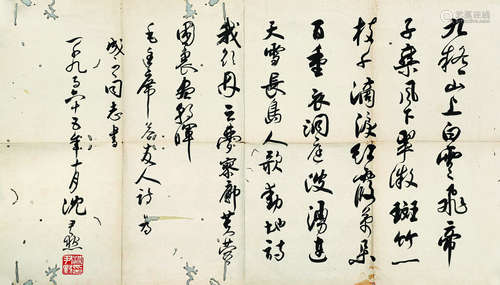 九嶷山上白雲飛帝
子乘風下翠微斑竹一
枝千滴淚紅霞萬朵
百重衣洞庭波湧連
天雪長島人歌動地詩
我欲因之夢寥廓芙蓉
國裏盡朝暉
毛主席答友人詩為
成 同志書
一千九百六十五年 月沈尹默